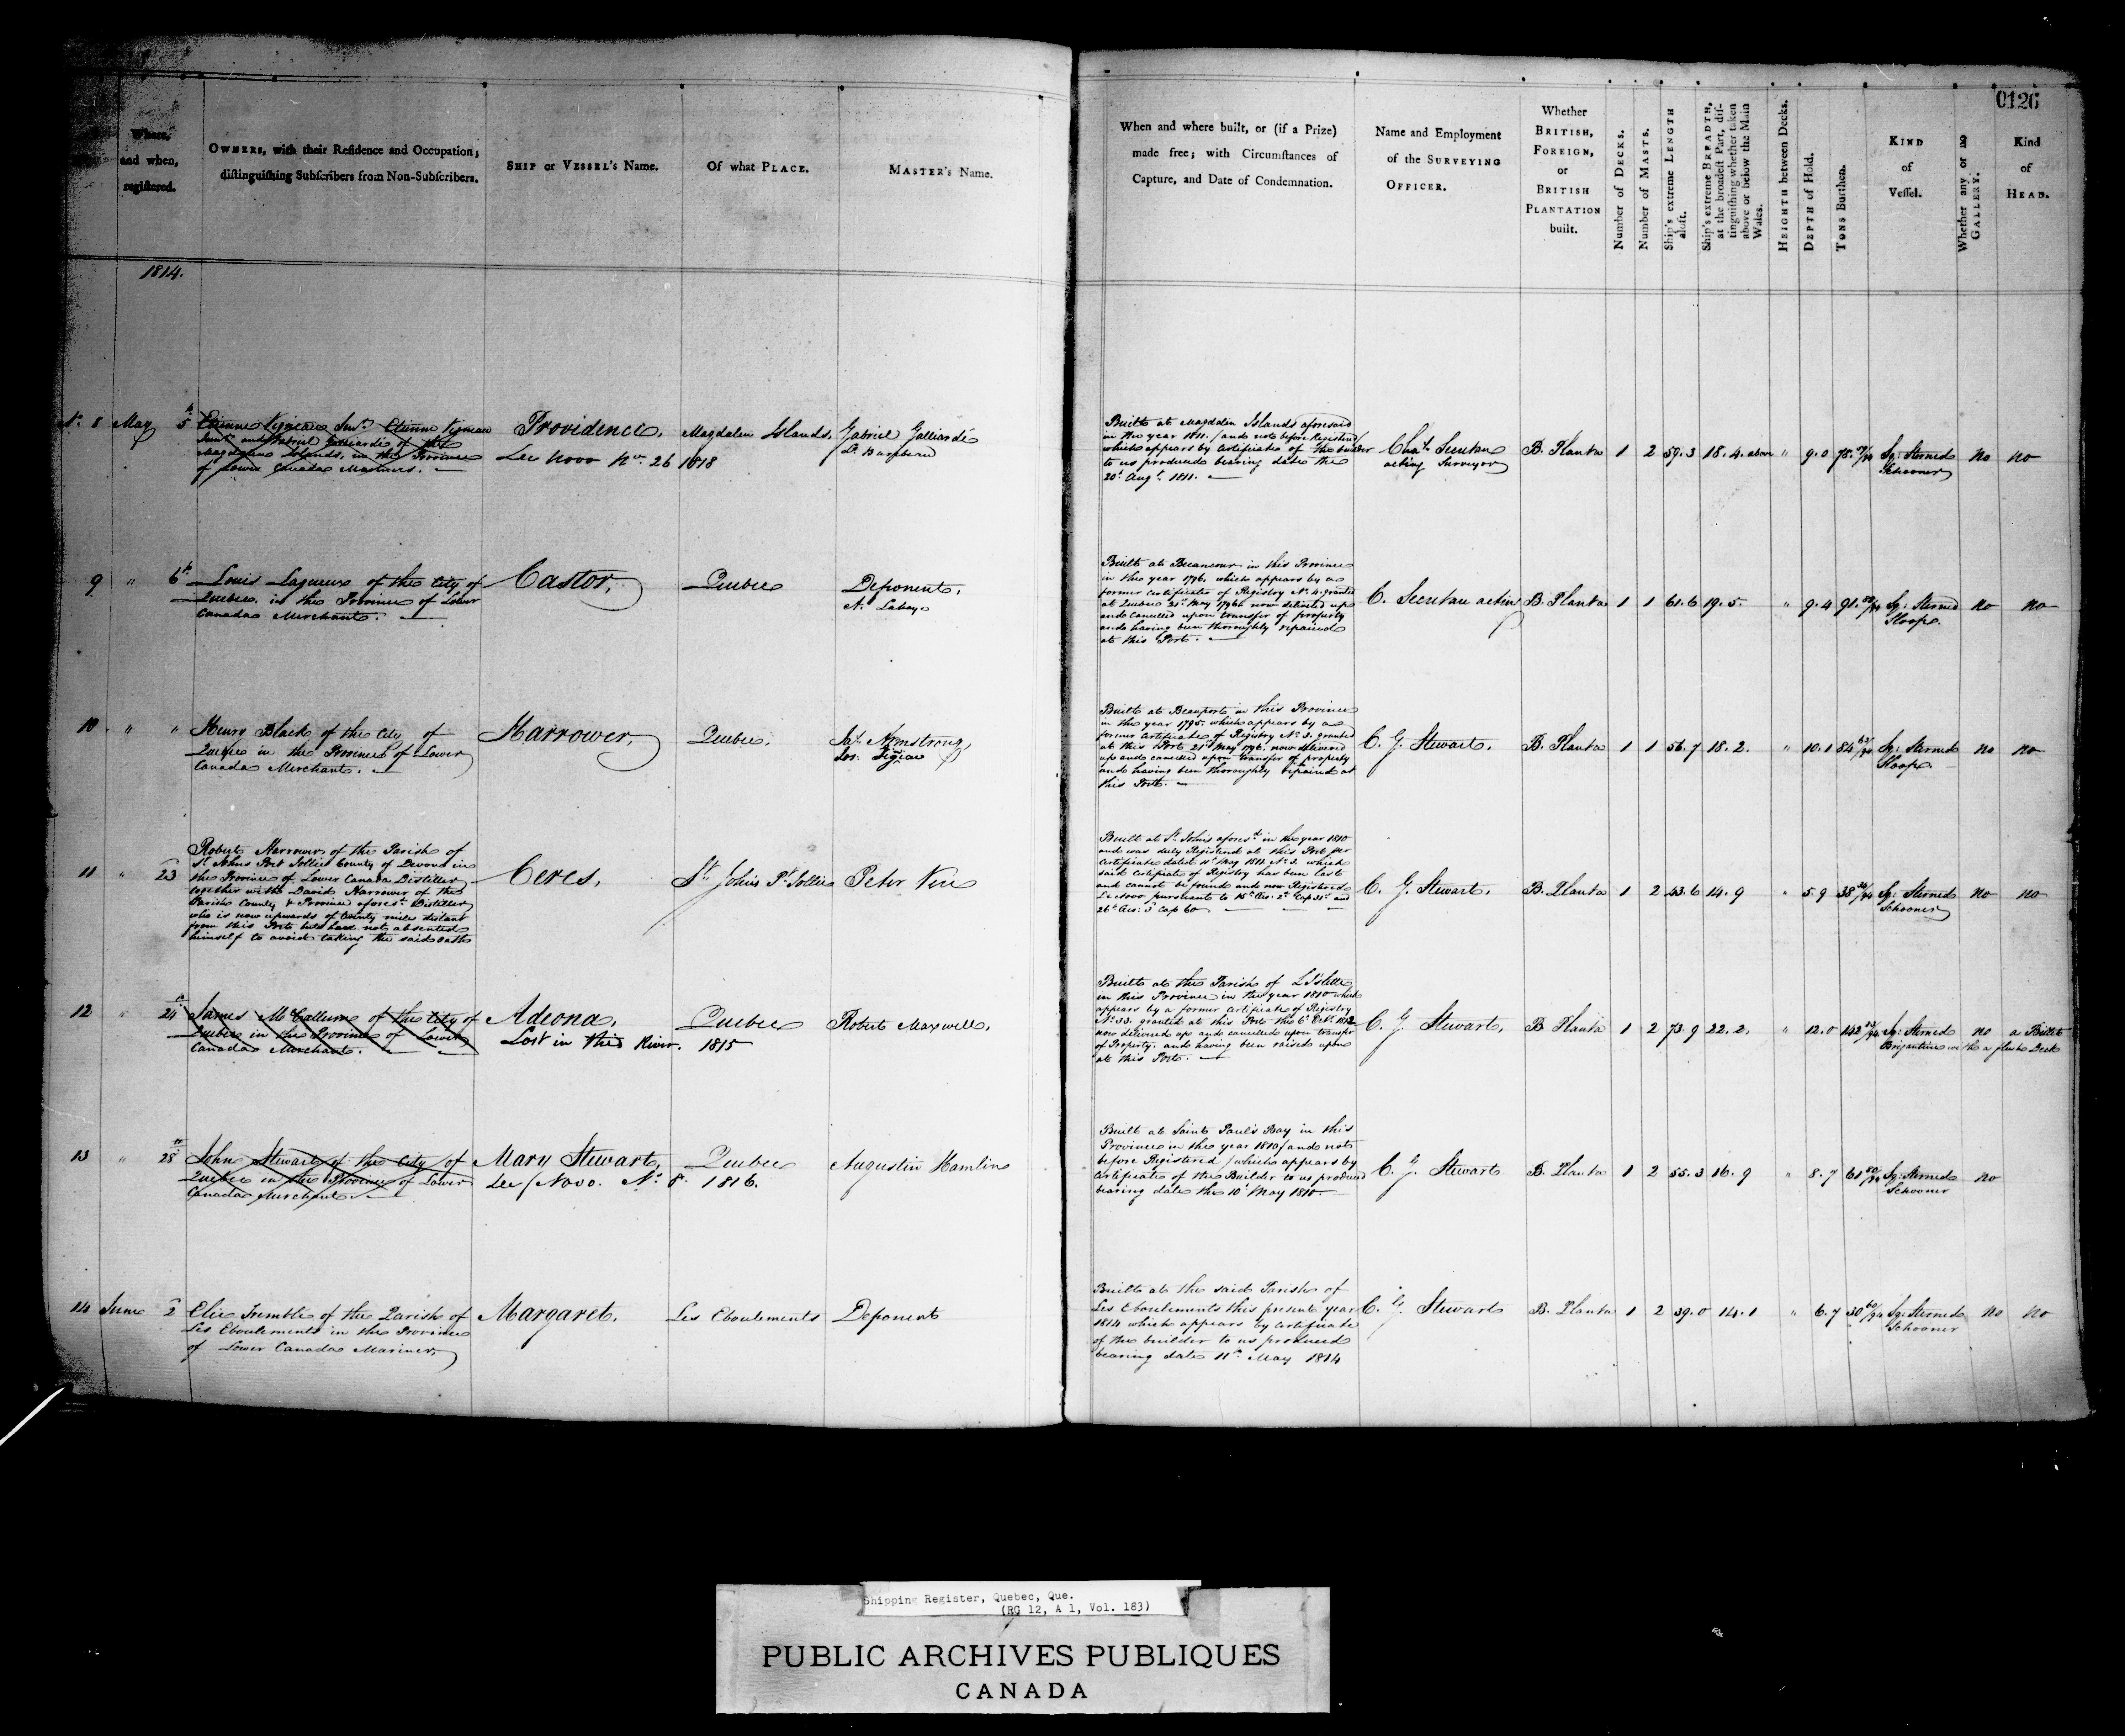 0126
Where,
and when,
registered.
OWNERS, with their Residence and Occupation;
distinguishing Subscribers from Non-Subscribers.
SHIP or VESSEL's Name.
Of what PLACE.
MASTER's Name.
When and where built, or (if a Prize)
made free; with Circumstances of
Capture, and Date of Condemnation.
Name and Employment
of the SURVEYING
OFFICER.
Whether
BRITISH,
FOREIGN,
or
BRITISH
PLANTATION
built.
Number of DECKS.
Number of MASTS.
Ship's extreme LENGTH
aloft.
Ship's extreme BREADTH,
at the broadest Part, dis-
tinguishing whether taken
above or below the Main
Wales.
HEIGHTH between Decks.
DEPTH of Hold.
TONS Burthen.
KIND
of
Vessel.
Whether any or no
GALLERY.
Kind
of
HEAD.
1814.
No. 8 May 5th
Etienne Vigneau Senr. Etienne Vigneau
Junr. and Gabriel Galliardie of the
Magdalen Islands, in the Province
of Lower Canada Mariners.
Providence,
De Novo No. 26 1818
Magdalen Islands,
Gabriel Galliardie
Built at Magdalen Islands aforesaid
in the year 1811. (and not before Registered)
which appears by Certificate of the builder
to us produced bearing date the
20th Augt. 1811.
acting Surveyor
B. Planta 1 2 59.3 18.4. above " 9.0 78. Sq: Sterned
Schooner
no no
9 " 6th
Louis Lagueux of the City of
Quebec in the Province of Lower
Canada Merchant.
Castor,
Quebec
Deponent,
Built at Becancour in this Province
in the year 1796. which appears by a
former Certificate of Registry No. 4. granted
at Quebec 21st May 1796. now delivered up
and cancelled upon transfer of property
and having been thoroughly repaired
at this Port.
B. Planta 1 1 61.6 19.5. " 9.4 91. Sq: Sterned
Sloop.
no no
10 " "
Henry Black of the City of
Quebec in the Province of Lower
Canada Merchant.
Harrower,
Quebec.
Jas. Armstrong,
Built at Beauport in this Province
in the year 1795. which appears by a
former Certificate of Registry No. 3. granted
at this Port 21st May 1796. now delivered
up and cancelled upon transfer of property
and having been thoroughly repaired at
this Port.
C. G. Stewart.
B. Planta 1 1 56.7 18.2. " 10.1 84 Sq: Sterned
Sloop.
no no
11 " 23
Robert Harrower of the Parish of
St. Johns Port Jollie County of Devon in
the Province of Lower Canada Distiller
together with David Harrower of the
Parish County & Province aforest. Distiller
who is now upwards of twenty miles distant
from this Port but hath not absented
himself to avoid taking the said oath
Ceres,
St. Johns Pt. Jollie
Peter
Built at St. Johns aforesd. in the year 1810
and was duly Registered at this Port per
Certificate dated 11th May 1811. No. 3. which
said Certificate of Registry has been lost
and cannot be found and now Registered
De Novo pursuant to 15th Geo: 2d. Cap 31st and
26th Geo: 3d Cap 60
C. G. Stewart.
B. Planta 1 2 43.6 14.9 " 5.9 38 Sq: Sterned
Schooner
no no
12 " 24th
James McCallum of the City of
Quebec in the Province of Lower
Canada Merchant.
Adeona,
Lost in the River. 1815
Quebec
Robert Maxwell,
Built at the Parish of L'Islette
in this Province in the year 1810 which
appears by a former Certificate of Registry
No. 33. granted at this Port the 6th Octr. 1812
now delivered up and cancelled upon transfer
of Property, and having been raised upon
at this Port.
C. G. Stewart,
B Planta 1 2 73.9 22.2. " 12.0 142 Sq: Sterned
Brigantine with a flush Deck
no a Billet
13 " 28th
John Stewart of the City of
Quebec in the Province of Lower
Canada Merchant.
Mary Stewart,
De Novo. No. 8. 1816.
Quebec
Augustin Hamlin
Built at Saint Paul's Bay in this
Province in the year 1810 (and not
before Registered) which appears by
Certificate of the Builder to us produced
bearing date the 10th May 1810.
C. G. Stewart
B. Planta 1 2 55.3 16.9 " 8.7 61 Sq: Sterned
Schooner
no
14 June 2
Elie Tremble of the Parish of
Les Eboulements in the Province
of Lower Canada Mariner,
Margaret.
Les Eboulements
Deponent
Built at the said Parish of
Les Eboulements this present year
1814 which appears by Certificate
of the builder to us produced
bearing date 11th May 1814
C. G. Stewart
B. Planta 1 2 39.0 14.1 " 6.7 30 Sq: Sterned
Schooner
no no
Shipping Register, Quebec, Que.
(RG 12, A 1, Vol. 183)
PUBLIC ARCHIVES PUBLIQUES
CANADA